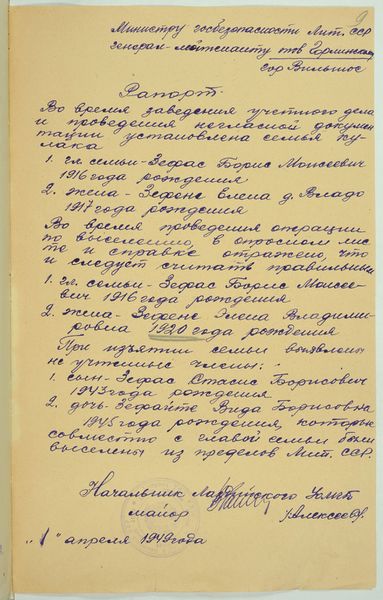 9
Министру госбезопасности Лит. ССР
генерал-лейтенанту тов Горлинскому
гор Вильнюс
Рапорт
Во время заведения учетного дела
и проведения негласной докумен
тации установлена семья ку-
лака
1. гл. семьи - Зефас Борис Моисеевич
1916 года рождения
2. жена - Зефене Елена д. Владо
1917 года рождения
Во время проведения операции
по выселению, в опросном лис
те и справке отражено, что
и следует считать правильным
1. гл. семьи - Зефас Борис Моисее-
вич 1916 года рождения
2. жена - Зефене Элена Владими-
ровна 1920 года рождения
При изъятии семьи выявлены
не учтенные члены:
1. сын - Зефас Стасис Борисович
1943 года рождения
2. дочь Зефайте Вида Борисовна
1945 года рождения, которые
совместно с главой семьи были
выселены из пределов Лит. ССР.
Начальник Уо МГБ
майор /Алексеев/
"1" апреля 1949 года